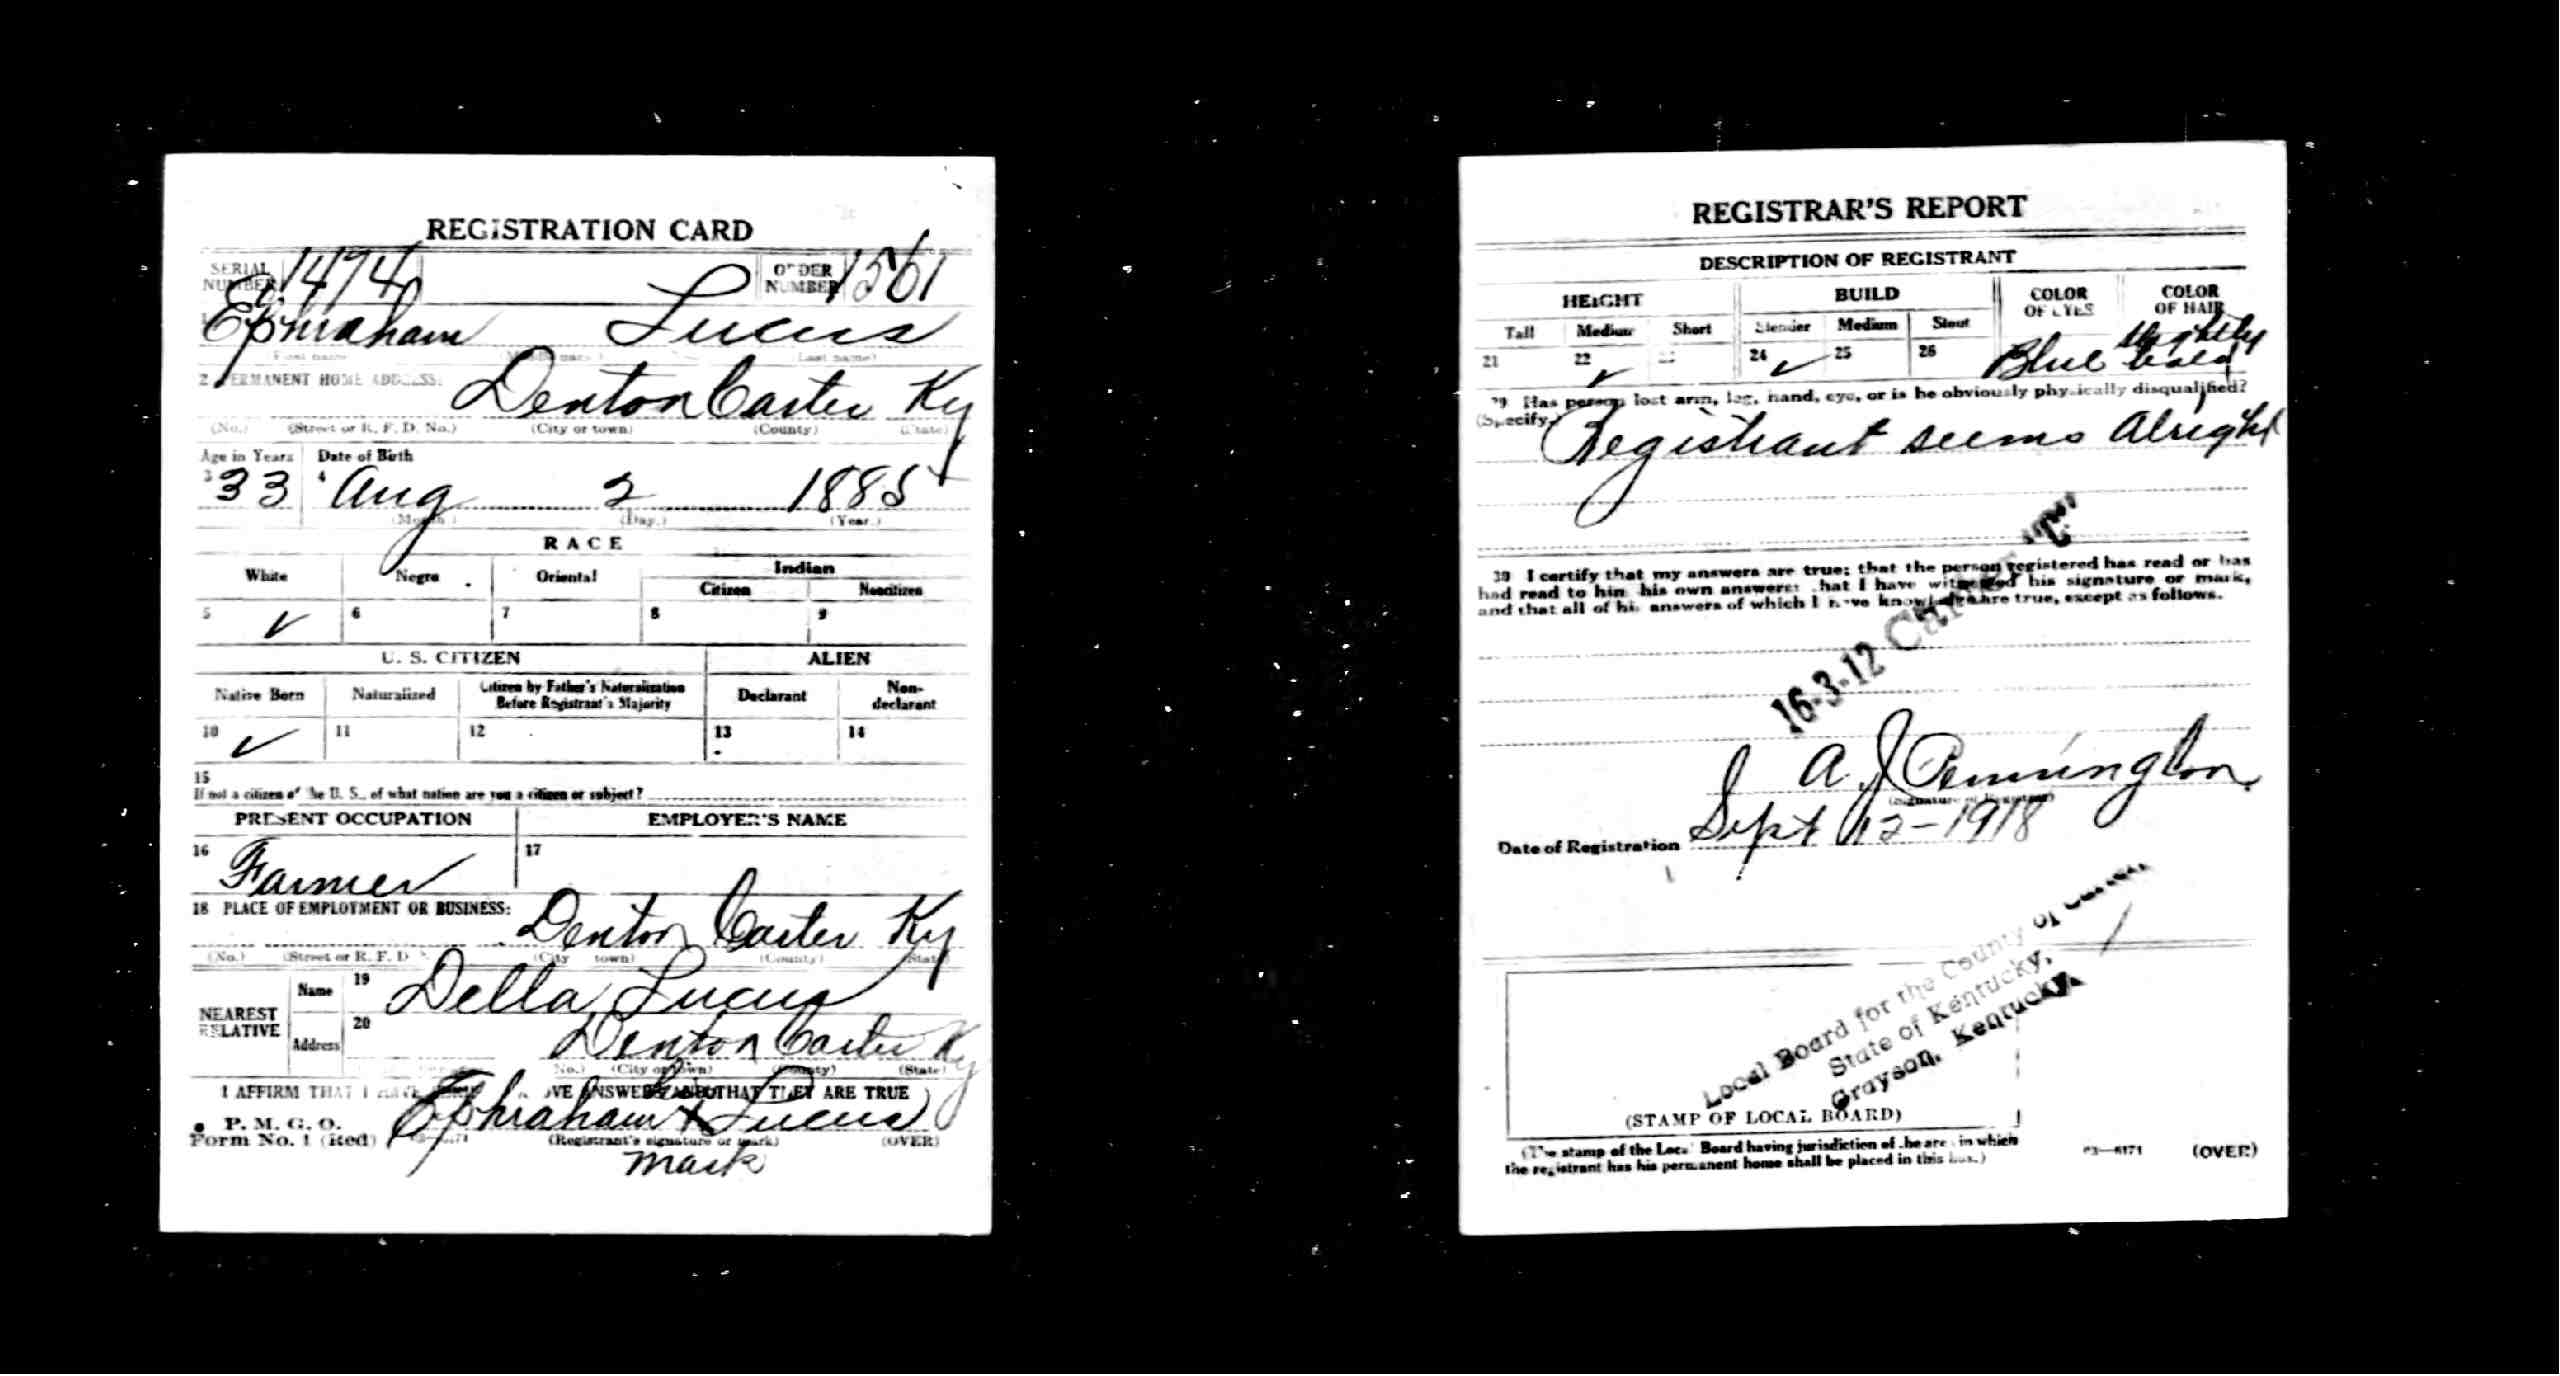 REGISTRATION CARD
SERIAL NUMBER 1474 ORDER NUMBER 1561
1 Ephraham Lucus
(First name) (Last name)
2 PERMANENT HOME ADDRESS:
Denton Carter Ky
(No.) (Street or R. F. D. No.) (City or town) (County) (State)
Age in Years Date of Birth
3 33 4 Aug 2 1885
(Month.) (Day.) (Year.)
RACE
White Negro Oriental Indian
Citizen Noncitizen
5 ✓ 6 7 8 9
U. S. CITIZEN ALIEN
Native Born Naturalized Citizen by Father's Naturalization Before Registrant's Majority Declarant Non-declarant
10 ✓ 11 12 13 14
15
If not a citizen of the U. S., of what nation are you a citizen or subject?
PRESENT OCCUPATION EMPLOYER'S NAME
16 Farmer 17
18 PLACE OF EMPLOYMENT OR BUSINESS:
Denton Carter Ky
(No.) (Street or R. F. D. (City town) (County) (State)
NEAREST RELATIVE Name 19 Della Lucus
Address 20 Denton Carter Ky
No.) (City or town) (County) (State)
I AFFIRM THAT I HAVE ANSWERS AND THAT THEY ARE TRUE
P. M. G. O.
Form No. 1 (Red) Ephraham X Lucus
(Registrant's signature or mark) (OVER)
mark
REGISTRAR'S REPORT
DESCRIPTION OF REGISTRANT
HEIGHT BUILD COLOR OF EYES COLOR OF HAIR
Tall Medium Short Slender Medium Stout
21 22 ✓ 24 ✓ 25 26 Blue slightly bald
29 Has person lost arm, leg, hand, eye, or is he obviously physically disqualified?
(Specify.) Registrant seems alright
30 I certify that my answers are true; that the person registered has read or has
had read to him his own answers; that I have witnessed his signature or mark,
and that all of his answers of which I have knowledge are true, except as follows.
16-3-12 Carter "C"
A J Pennington
(Signature of Registrar)
Date of Registration Sept 12-1918
Local Board for the County of Carter,
State of Kentucky,
Grayson, Kentucky.
(STAMP OF LOCAL BOARD)
(The stamp of the Local Board having jurisdiction of the area in which
the registrant has his permanent home shall be placed in this box.)
03—6171 (OVER)